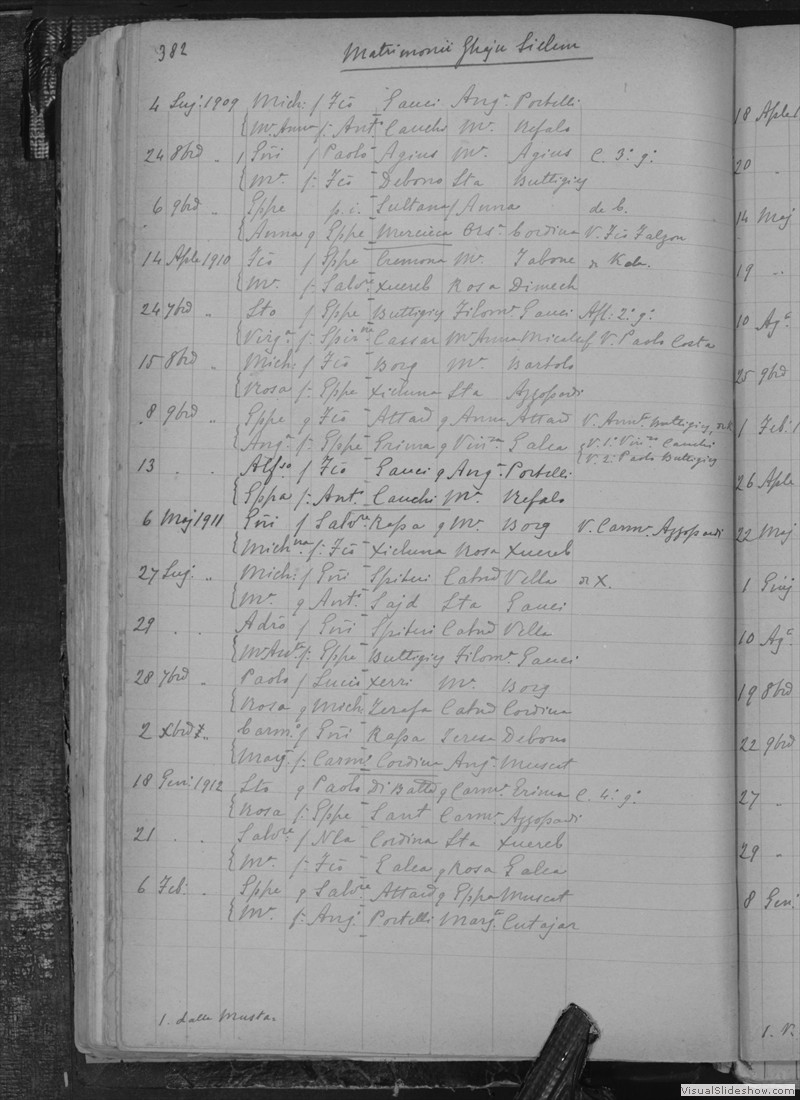 382 Matrimonii Ghajn Sielem
4 Lug. 1909 Mich: f Fcō Gauci Ang. Portelli
Mª Annª f: Antº Cauchi Mª Refalo
24 8brd „ 1 Gñi f Paolo Agius Mª Agius C. 3º gº
Mª f: Fcō Debono Sta Buttigieg
6 9brd „ Gppe p.i. Sultana f Anna de C.
Anna q Gppe Mercieca Orsª Cordina V. Fcō Falzon
14 Aple 1910 Fcō f Gppe Cremona Mª Tabone
Mª f: Salvre Xuereb Rosa Dimech
24 7brd „ Sto f Gppe Buttigieg Filomª Gauci Aff: 2º gº
Virgª f: Spirne Cassar Mª Anna Micallef V. Paolo Costa
15 8brd „ Mich: f Fcō Borg Mª Bartolo
Rosa f: Gppe Xicluna Sta Azzopardi
8 9brd „ Gppe q Fcō Attard q Anna Attard V. Annª Buttigieg
Angª f: Gppe Grima q Vinza Galea V. 1: Vinza Cauchi
V. 2: Paolo Buttigieg
13 . . Alfso f Fcō Gauci q Angª Portelli
Gppa f: Antº Cauchi Mª Refalo
6 Maj 1911 Gñi f Salvre Rapa q Mª Borg V. Carmª Azzopardi
Michna f: Fcō Xicluna Rosa Xuereb
27 Lug. „ Mich: f Gñi Spiteri Catnd Vella
Mª q Antº Sajd Sta Gauci
29 . . Adrō f Gñi Spiteri Catnd Vella
Mª Antª f: Gppe Buttigieg Filomª Gauci
28 7brd „ Paolo f Lucio Xerri Mª Borg
Rosa q Mich: Zerafa Catnd Cordina
2 Xbrd „ Carmº f Gñi Rapa Teresa Debono
Margª f: Carmº Cordina Angª Muscat
18 Gen: 1912 Sto q Paolo Di Battª q Carmª Grima C. 4º gº
Rosa f: Gppe Sant Carmª Azzopardi
21 . . Salvre f Nla Cordina Sta Xuereb
Mª f: Fcō Galea q Rosa Galea
6 Feb: . Gppe q Salvre Attard q Gppa Muscat
Mª f: Angº Portelli Margª Cutajar
1. dalla Musta.
18 Aple
20 „
14 Maj
19 „
10 Agº
25 9brd
1 Feb:
26 Aple
22 Maj
1 Giug
10 Agº
19 8brd
22 9brd
27 „
29 „
8 Gen:
1. V.
VisualSlideshow.com